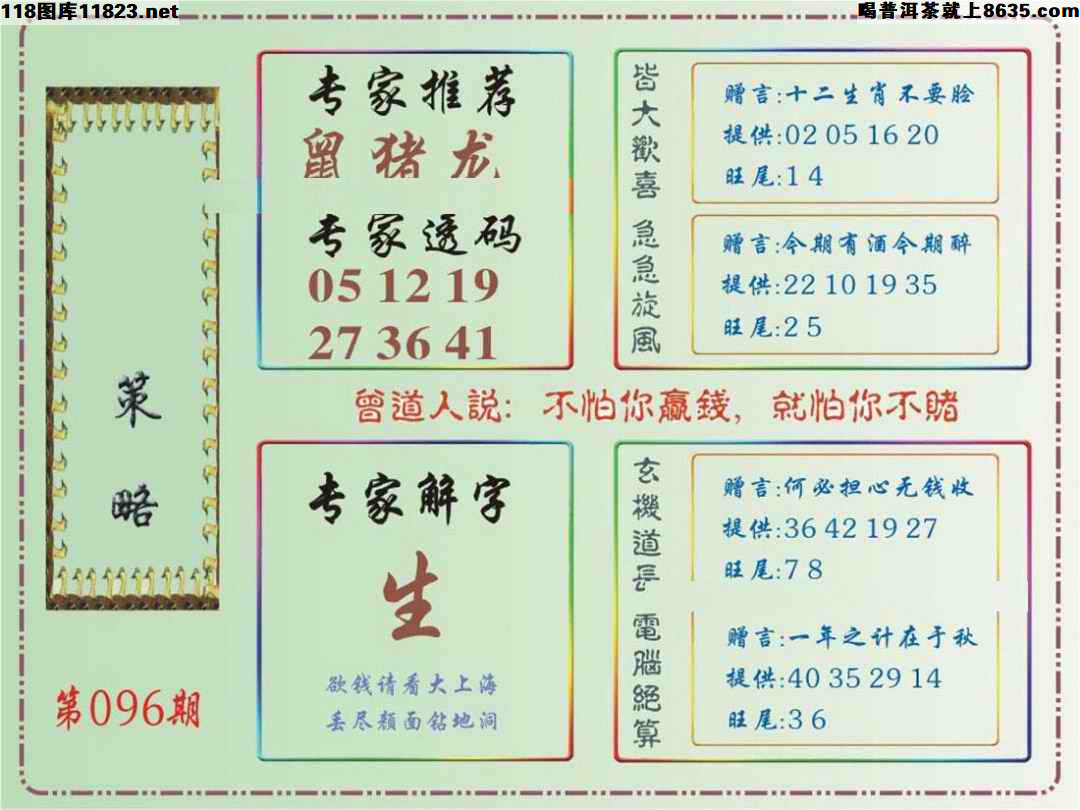 118图库11823.net
喝普洱茶就上8635.com
策
略
第096期
专家推荐
鼠 猪 龙
专家透码
05 12 19
27 36 41
皆大歡喜
赠言:十二生肖不要脸
提供:02 05 16 20
旺尾:1 4
急急旋風
赠言:今期有酒今期醉
提供:22 10 19 35
旺尾:2 5
曾道人説: 不怕你赢錢, 就怕你不賭
专家解字
生
欲钱请看大上海
丢尽颜面钻地洞
玄機道長
赠言:何必担心无钱收
提供:36 42 19 27
旺尾:7 8
電腦絕算
赠言:一年之计在于秋
提供:40 35 29 14
旺尾:3 6